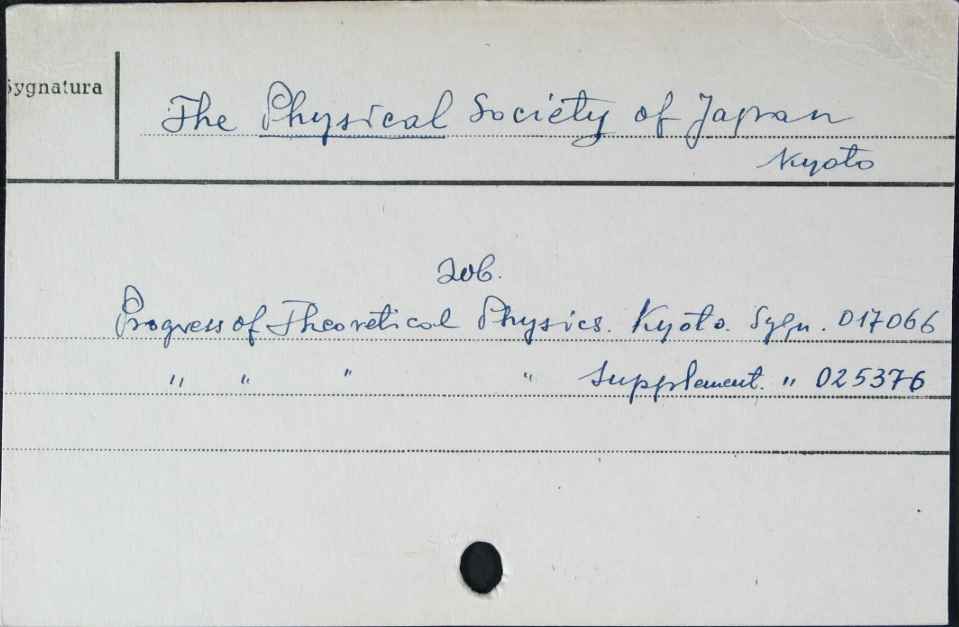 Sygnatura
The Physical Society of Japan
Kyoto
Zob.
Progress of Theoretical Physics. Kyoto. Sygn. 017066
" " " " Supplement. " 025376